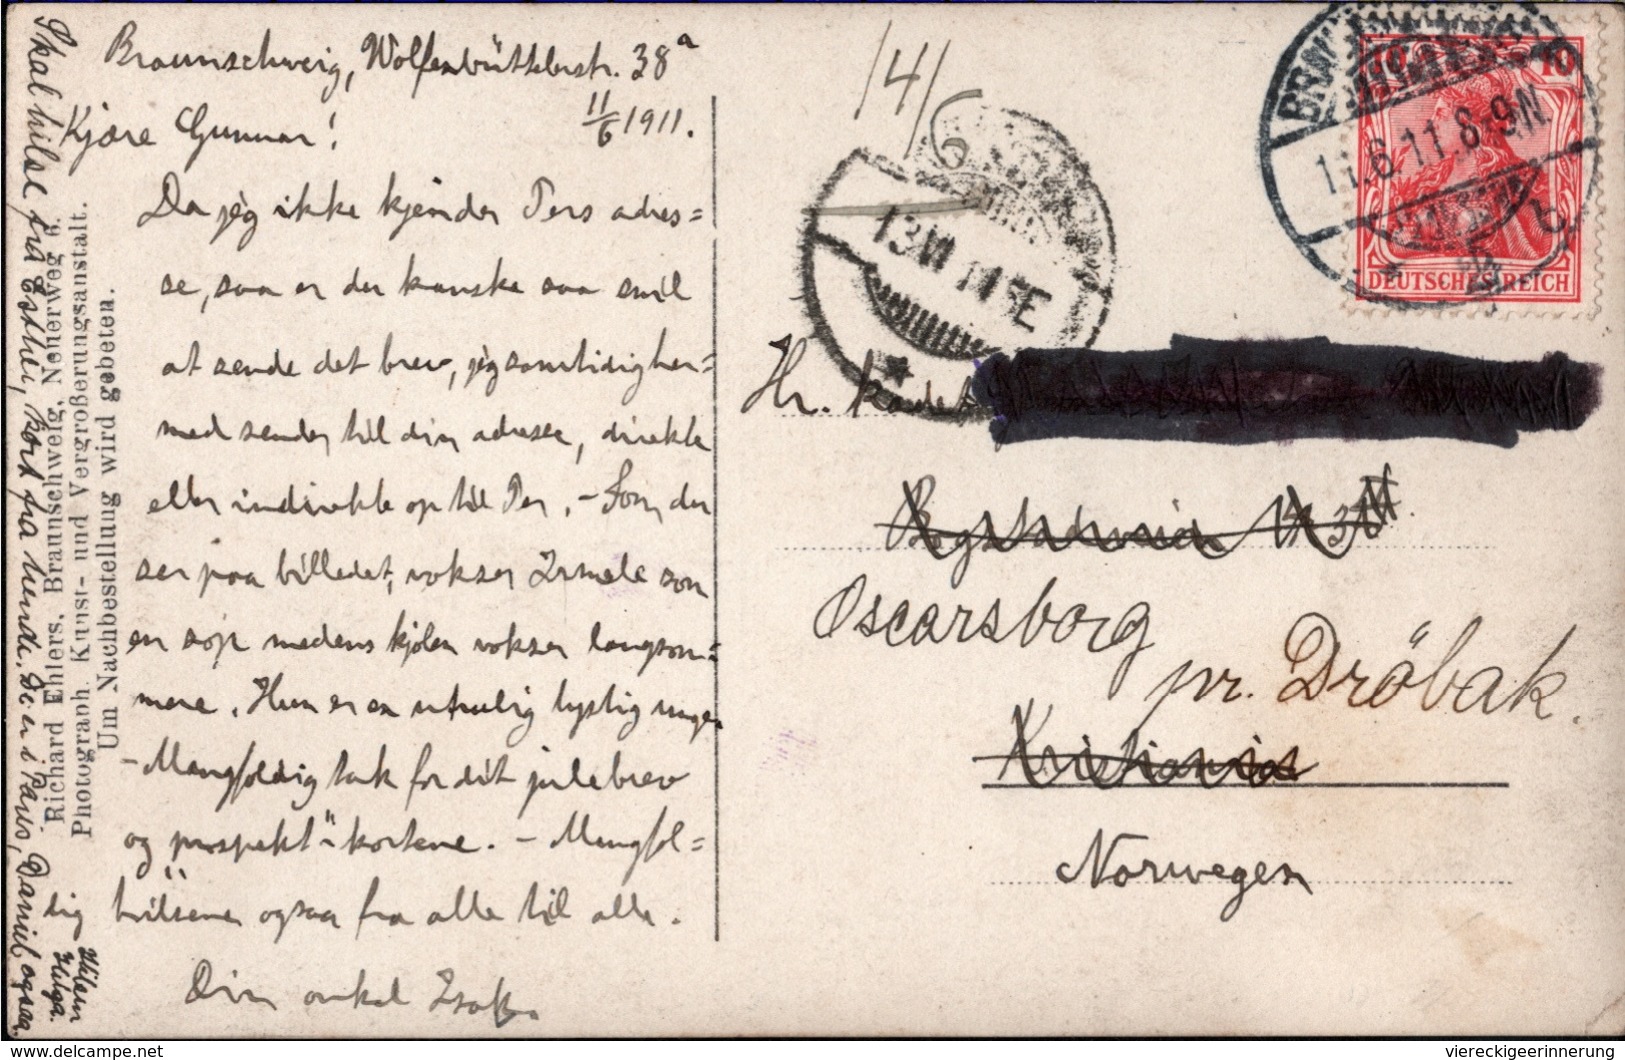 Braunschweig, Wolfenbüttlerstr. 38a
11/6 1911.
Kjære Gunnar!
Da jeg ikke kjender Pers adres=
se, saa er du kanske saa snil
at sende det brev, jeg samtidigher=
med sender til din adresse, direkte
eller indirekte op til Per. – Som du
ser paa billedet, vokser Irmele som
en sop medens kjolen vokser langsom=
mere. Hun er en utrulig lystig unge
– Mangfoldig tak for dit julebrev
og "prospekt"-kortene. – Mangfol=
dig hilsener ogsaa fra alle til alle.
Din onkel Isak.
Skal hilse fra Esther, kort fra hende. De er i Paris, Daniel ogsaa.
Helga.
Richard Ehlers, Braunschweig, Neuerweg 6.
Photograph. Kunst- und Vergroßerungsanstalt.
Um Nachbestellung wird gebeten.
14/6
13 VI 11 5E
BRAUN
11.6.11.8-9N
b
10
10
DEUTSCHES REICH
Hr. kadet
Oscarsborg
pr. Dröbak.
Kristiania
Norwegen
viereckigeerinnerung
delcampe.net